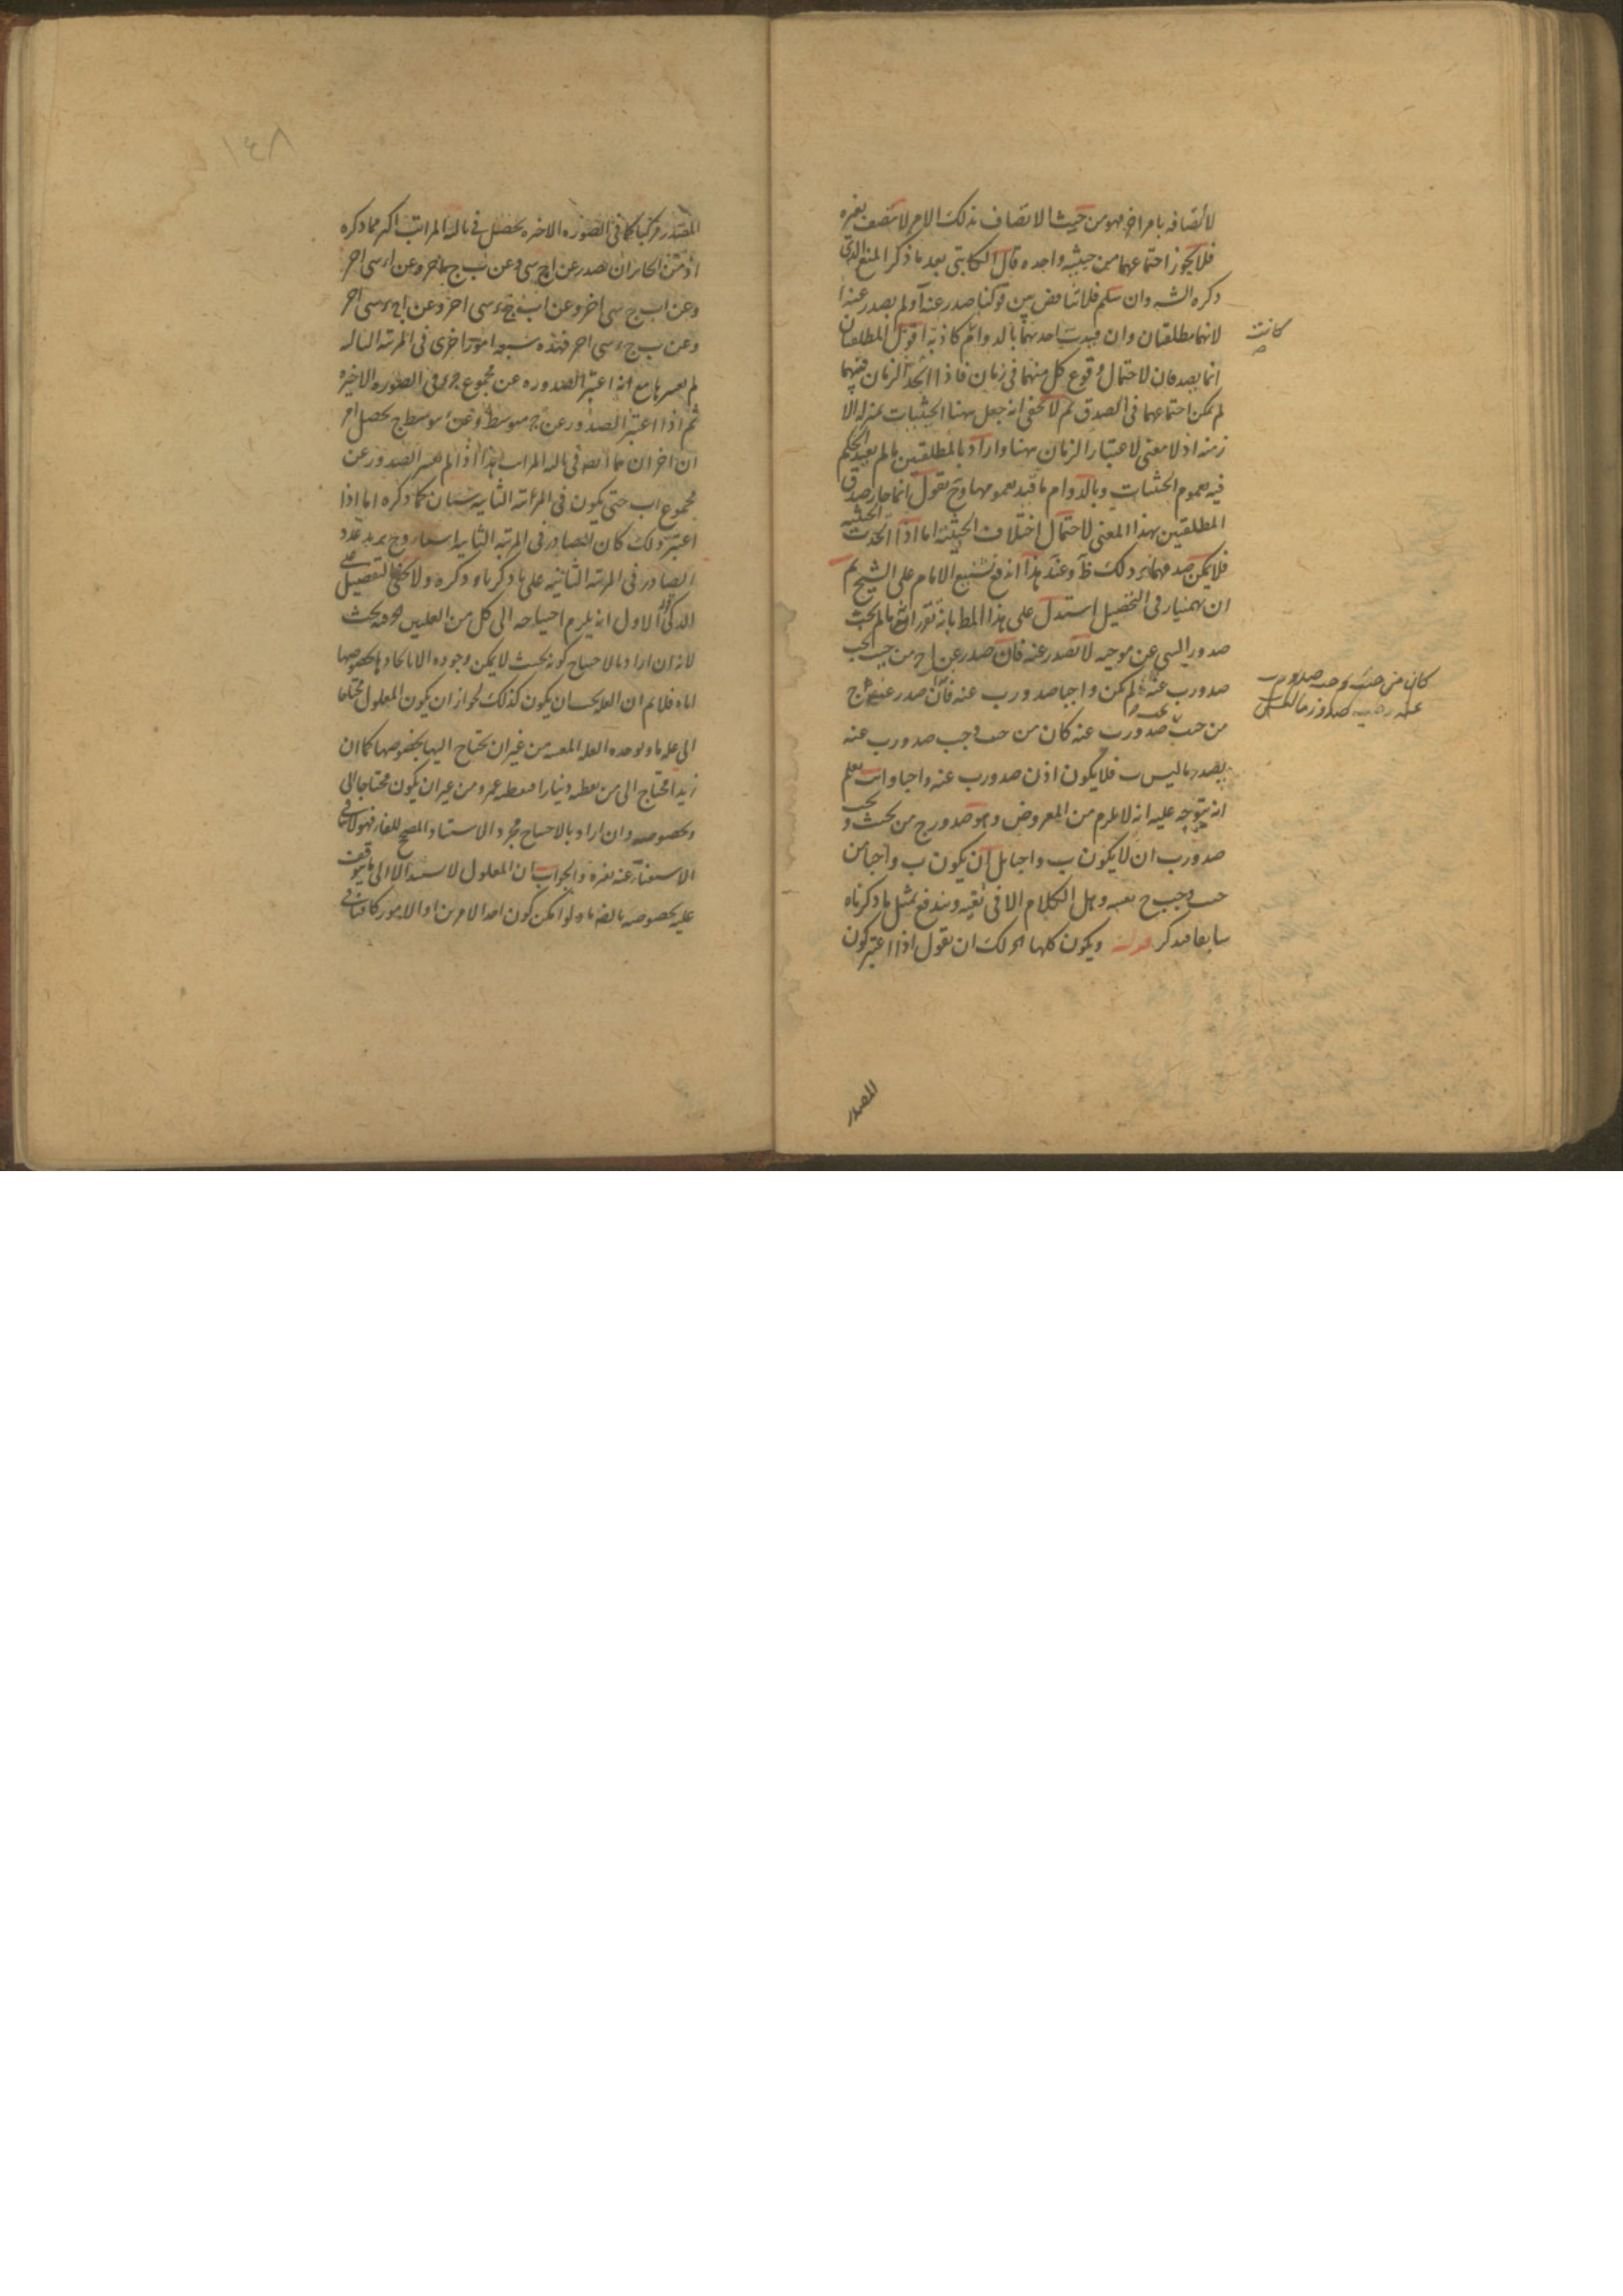 لاتصافه بامر اخر فهو من حيث الاتصاف بذلك الامر لا يتصف بغيره
فلا يجوز اجتماعهما من حيثية واحدة قال الكاتبي بعد ما ذكر المنع الذي
ذكره الشه وان سلم فلا تناقض بين قولنا صدر عنه ا ولم يصدر عنه ا
لانهما مطلقتان وان قيدت احديهما بالدوام كاذبة اقول المطلقتان
كانت
انما يصدقان لاحتمال وقوع كل منهما في زمان فاذا اتحد الزمان فيهما
لم يمكن اجتماعهما في الصدق ثم لا يخفى انه جعل ههنا الحيثيات بمنزلة الا
زمنة اذ لا معنى لاعتبار الزمان ههنا واراد بالمطلقتين ما لم يقيد الحكم
فيه بعموم الحيثيات وبالدوام ما قيد بعمومها وح نقول انما جاز صدق
المطلقتين بهذا المعنى لاحتمال اختلاف الحيثية اما اذا اتحدت الحيثية
فلا يمكن صدقهما ذلك ظ وعند هذا اندفع تشنيع الامام على الشيخ ثم
ان بهمنيار في التحصيل استدل على هذا المط بانه تقرر ان الشئ ما لم يجب
صدور الشي عن موجبه لا يصدر عنه فان صدر عن ا ج من حيث يجب
صدور ب عنه لم يكن واجبا صدور ب عنه فان صدر عنه ج
كان من حيث وجب صدور ب
من حيث يجب صدور ب عنه كان من حيث وجب صدور ب عنه
يصدر ما ليس ب فلا يكون اذن صدور ب عنه واجبا وانت تعلم
انه يتوجه عليه انه لا يلزم من المعروض وهو صدور ج من حيث يجب
صدور ب ان لا يكون ب واجبا بل ان يكون ب واجبا من
حيث وجب ج بعينه وهل الكلام الا في نفيه ويندفع بمثل ما ذكرناه
سابقا فتذكر قوله ويكون كلها الخ لك ان تقول اذا اعتبر كون
المصدر
١٤٨
المصدر مركبا كما في الصورة الاخيرة يحصل في ثالثة المراتب اكثر مما ذكره
اذ من الجائز ان يصدر عن ا ج شي وعن ب ج اخر وعن ا ء شي اخر
وعن ا ب ج شي اخر وعن ا ب ء شي اخر وعن ا ج ء شي اخر
وعن ب ج ء شي اخر فهذه سبعة امور اخرى في المرتبة الثالثة
لم يعتبرها مع انه اعتبر الصدور عن مجموع ج ء في الصورة الاخيرة
ثم اذا اعتبر الصدور عن ج بتوسط ء وعن ء بتوسط ج يحصل امر
ان اخران هما ايضا في ثالثة المراتب هذا اذا لم يعتبر الصدور عن
مجموع ا ب حتى يكون في المرتبة الثانية شيئان كما ذكره اما اذا
اعتبر ذلك كان الصادر في المرتبة الثانية اشياء وح يزيد عدد
الصادر في المرتبة الثانية على ما ذكرنا وذكره ولا يخفى التفصيل على
الذكي قوله الاول انه يلزم احتياجه الى كل من العلتين الخ فيه بحث
لانه ان اراد بالاحتياج كونه بحيث لا يمكن وجوده الا بايجادها بخصوصها
اياه فلا نم ان العلة يجب ان يكون كذلك لجواز ان يكون المعلول محتاجا
الى علة ما ويوجده العلة المعينة من غير ان يحتاج اليها بخصوصها كما ان
زيدا محتاج الى من يعطيه دينارا فيعطيه عمرو من غير ان يكون محتاجا الى
بخصوصه وان اراد بالاحتياج مجرد الاستناد المصحح للفاء فهو لا ينافي
الاستغناء عنه بغيره والجواب ان المعلول لا يستند الا الى ما يتوقف
عليه بخصوصه بالضرورة ولو امكن كون احد الامرين او الامور كافيا في